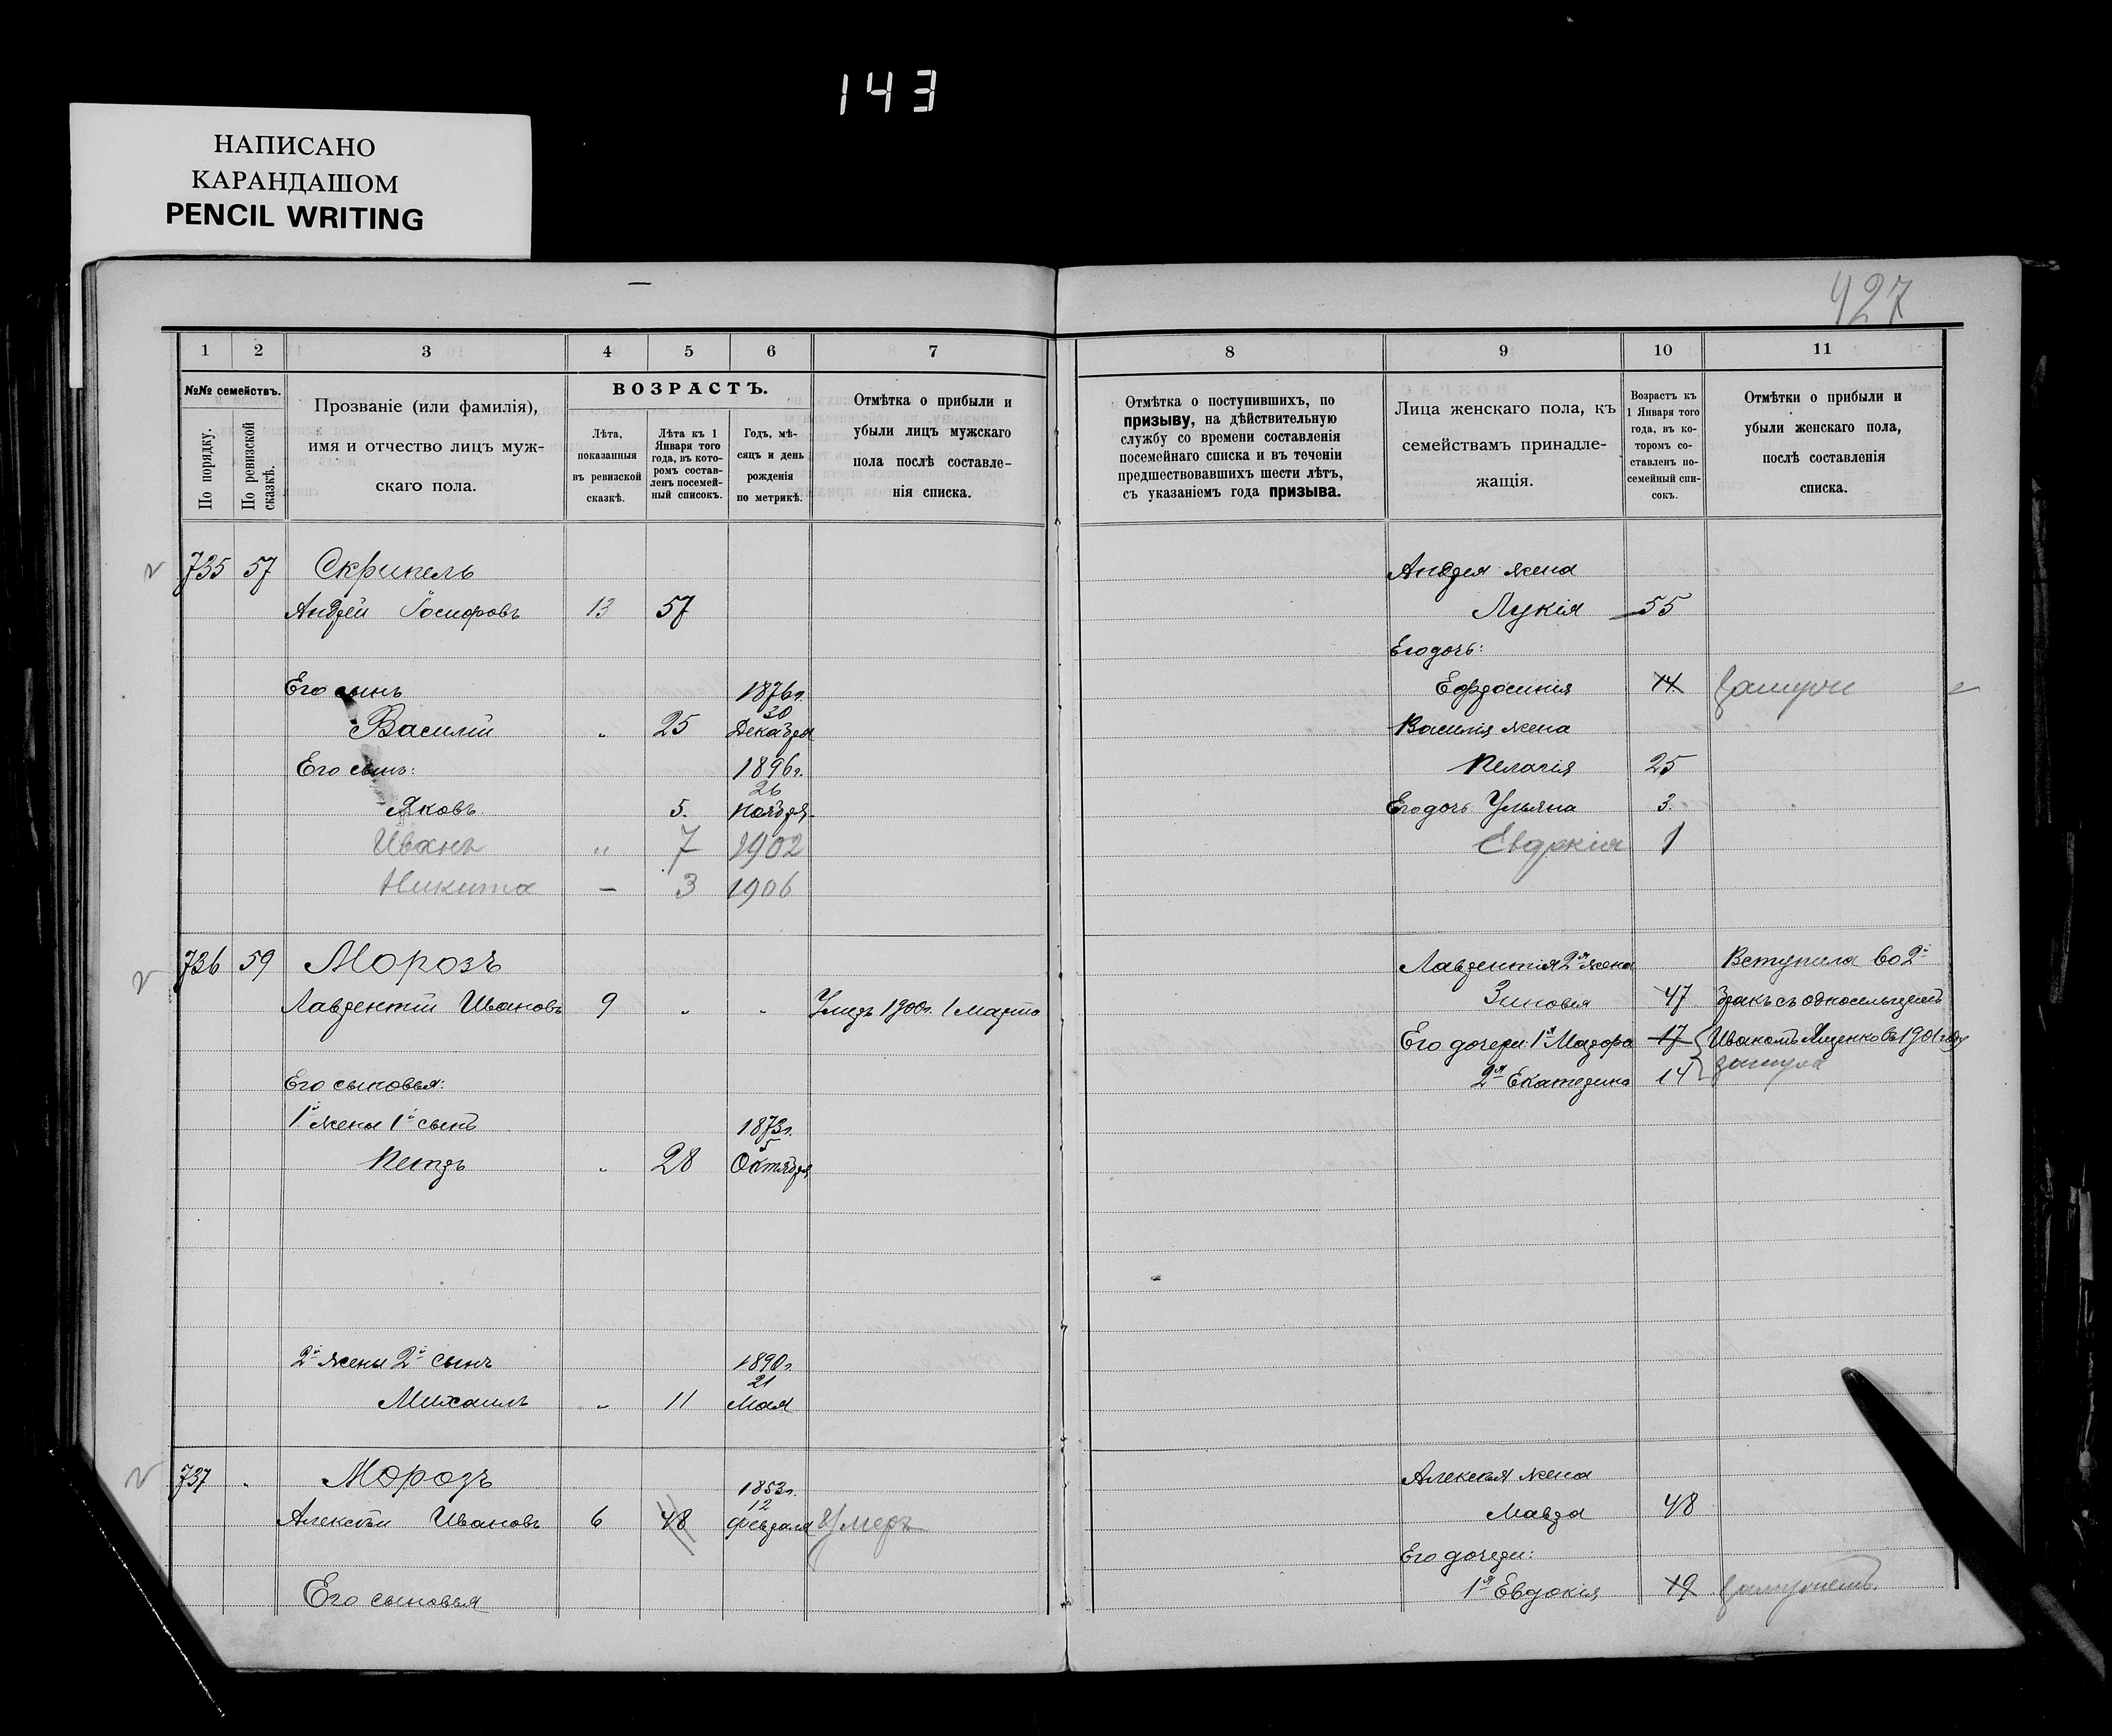 143
НАПИСАНО
КАРАНДАШОМ
PENCIL WRITING
427
1 2 3 4 5 6 7 8 9 10 11
№№ семействъ.
По порядку.
По ревизской сказкѣ.
Прозваніе (или фамилія),
имя и отчество лицъ муж-
скаго пола.
ВОЗРАСТЪ.
Лѣта,
показанныя
въ ревизской
сказкѣ.
Лѣта къ 1
Января того
года, въ кото-
ромъ состав-
ленъ посемей-
ный списокъ.
Годъ, мѣ-
сяцъ и день
рожденія
по метрикѣ.
Отмѣтка о прибыли и
убыли лицъ мужскаго
пола послѣ составле-
нія списка.
Отмѣтка о поступившихъ, по
призыву, на дѣйствительную
службу со времени составленія
посемейнаго списка и въ теченіи
предшествовавшихъ шести лѣтъ,
съ указаніемъ года призыва.
Лица женскаго пола, къ
семействамъ принадле-
жащія.
Возрастъ къ
1 Января того
года, въ ко-
торомъ со-
ставленъ по-
семейный спи-
сокъ.
Отмѣтки о прибыли и
убыли женскаго пола,
послѣ составленія
списка.
735 57 Скрипель Андрея жена
Андрей Іосифовъ 13 57 Лукія 55
Его дочь:
Его сынъ 1876 г. Ефросинія 14
30
Василій " 25 Декабря Василія жена
Его сынъ: 1896 г. Пелагія 25
26
Яковъ 5. Ноября Его дочь Ульяна 3.
Иванъ " 7 1902 Евдокія 1
Никита — 3 1906
736 59 Морозъ Лаврентія 2я жена Вступила во 2й
Лаврентій Ивановъ 9 " " Умеръ 1900 г. 1 Марта Зиновія 47 бракъ съ односельцемъ
Его дочери: 1я Мавра 17 Иваномъ Яценко въ 1901 году
Его сыновья: 2я Екатерина 14
1й жены 1й сынъ 1873 г.
5
Петръ " 28 Октября
2й жены 2й сынъ 1890 г.
21
Михаилъ " 11 Мая
737 " Морозъ 1853 г. Алексѣя жена
12
Алексѣй Ивановъ 6 48 Февраля Умеръ Мавра 48
Его дочери:
Его сыновья 1я Евдокія 19